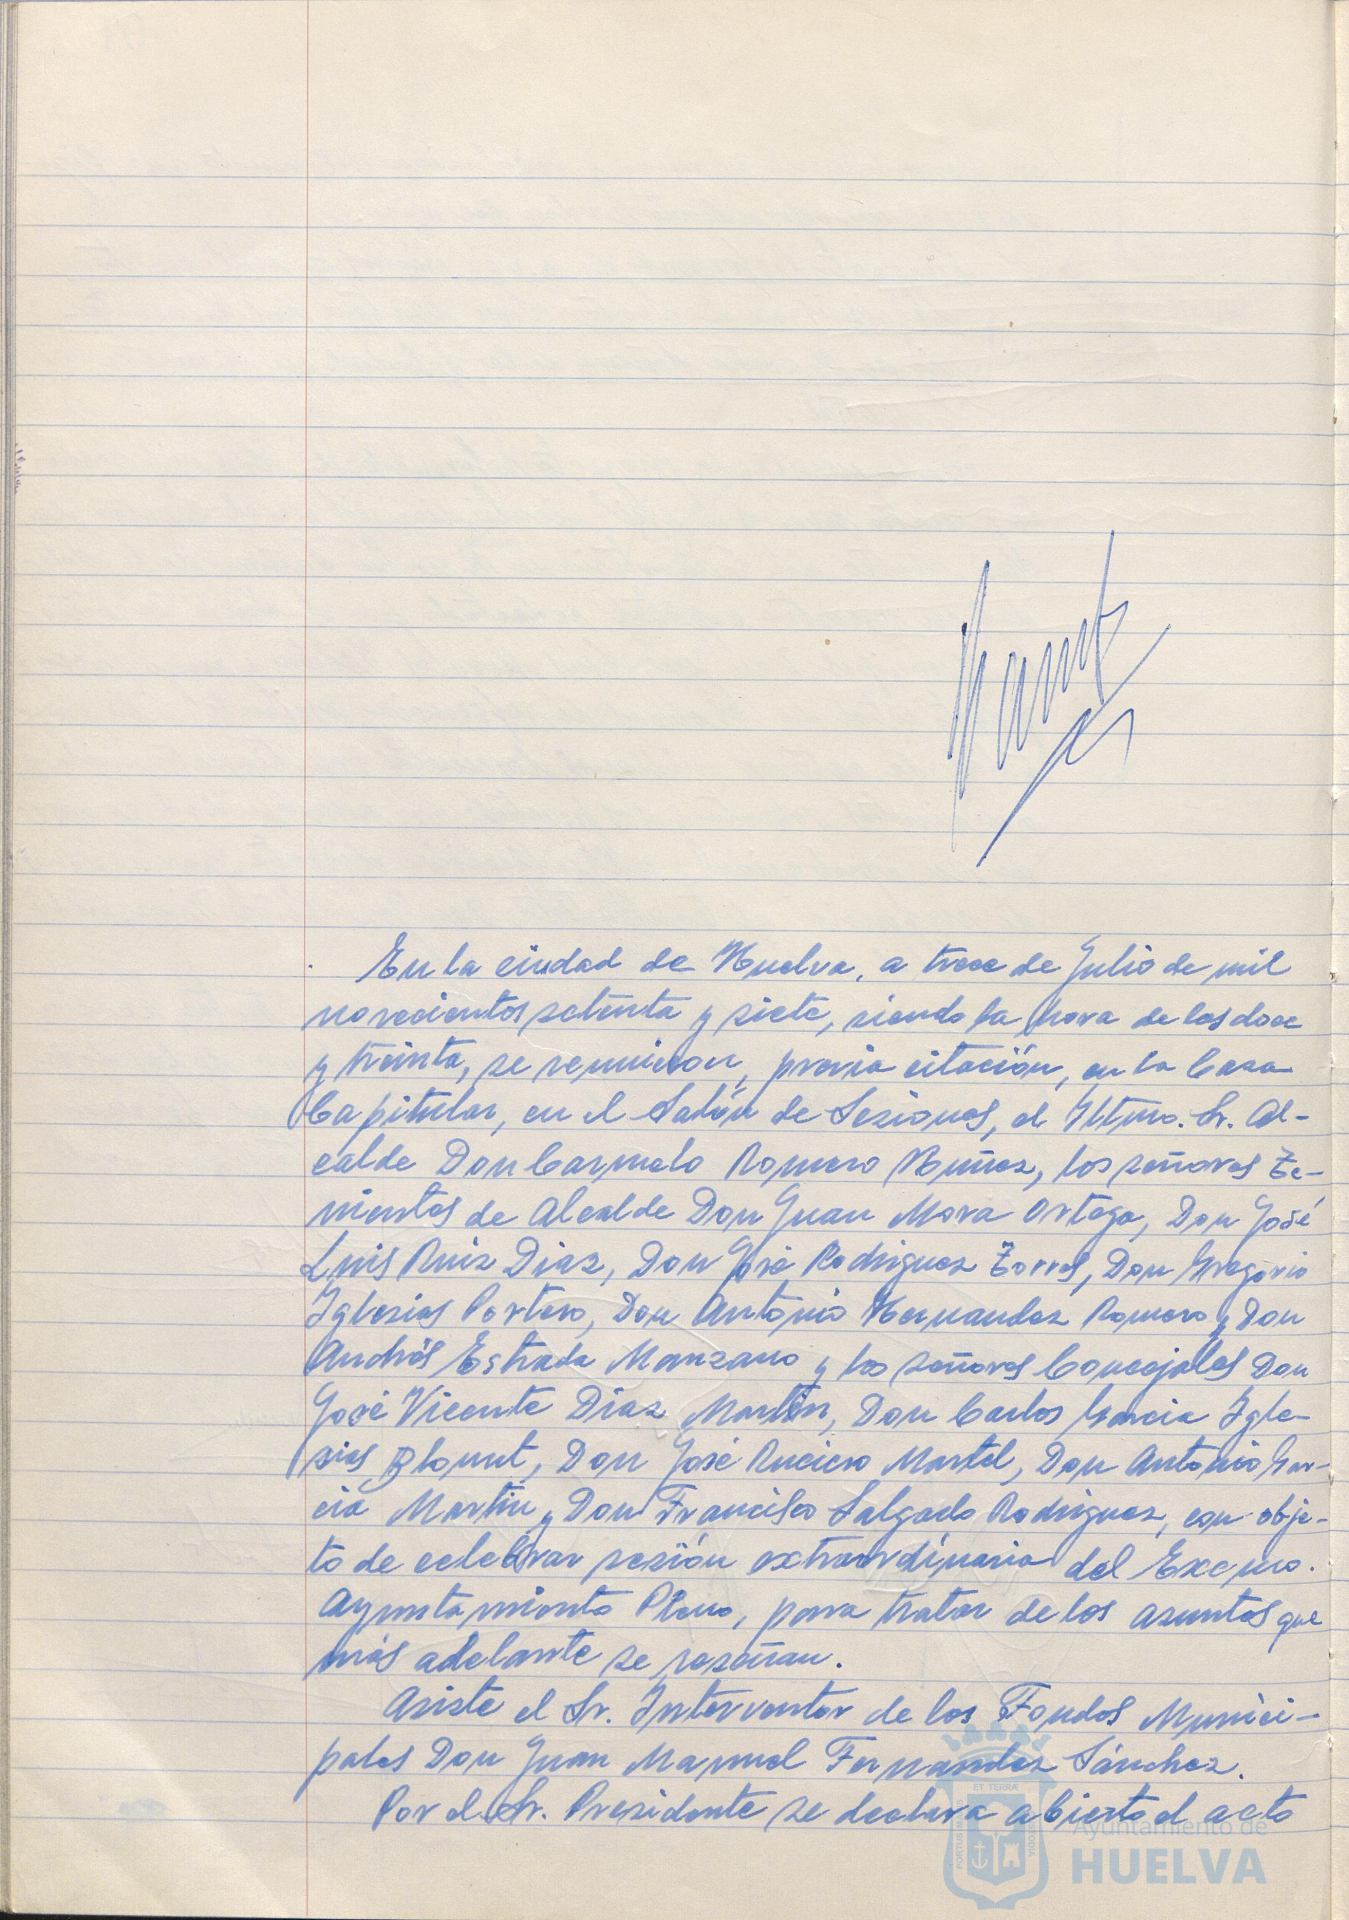 En la ciudad de Huelva, a trece de Julio de mil
novecientos setenta y siete, siendo la hora de las doce
y treinta, se reunieron, previa citación, en la Casa
Capitular, en el Salón de Sesiones, el Iltmo. Sr. Al-
calde Don Carmelo Romero Núñez, los señores Te-
nientes de Alcalde Don Juan Mora Ortega, Don José
Luis Ruiz Diaz, Don José Rodriguez Torres, Don Gregorio
Iglesias Portero, Don Antonio Hernandez Romero y Don
Andrés Estrada Manzano y los señores Concejales Don
José Vicente Diaz Martín, Don Carlos Garcia Igle-
sias Blount, Don José Rucico Martel, Don Antonio Gar-
cia Martin y Don Francisco Salgado Rodriguez, con obje-
to de celebrar sesión extraordinaria del Excmo.
Ayuntamiento Pleno, para tratar de los asuntos que
más adelante se reseñan.
Asiste el Sr. Interventor de los Fondos Munici-
pales Don Juan Manuel Fernandez Sánchez.
Por el Sr. Presidente se declara abierto el acto
ET TERRÆ
PORTUS MARIS
CUSTODIA
Ayuntamiento de
HUELVA